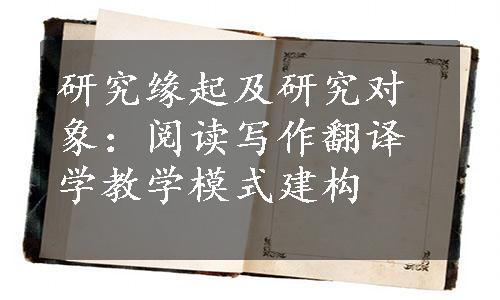 研究缘起及研究对
象：阅读写作翻译
学教学模式建构